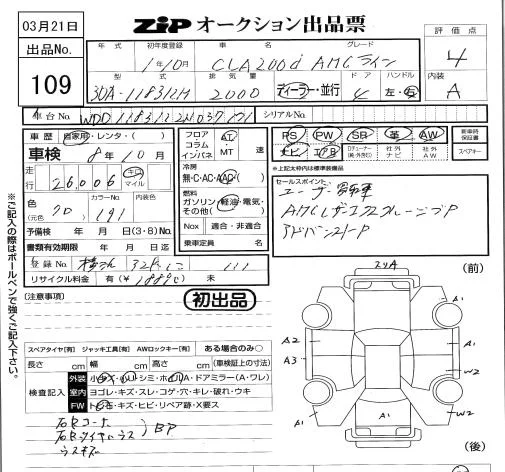 03月21日
出品No.
109
ZiP オークション出品票
評価点
4
内装
A
年式 初年度登録 車名 グレード
1年10月 CLA200d AMGライン
型式 排気量 ドア ハンドル
3DA-118312M 2000 ディーラー・並行 4 左・右
車台No. シリアルNo.
車歴 自家用・レンタ・( )
車検 8年10月
走行 26,006 キロ マイル
色 (元色) クロ カラーNo. 191 内装色
予備検 年 月 日(3・8)No.
書類有効期限 年 月 日迄
登録No.
リサイクル料金 有(¥ ) 未
フロア コラム インパネ AT・MT 速
冷房 無・C・AC・AAC( )
燃料 ガソリン・軽油・電気・その他( )
Nox 適合・非適合
乗車定員 名
PS PW SR 革 AW
ナビ エアB TVチューナー(純・外別) 社外ナビ 社外AW
新車時保証書
スペアキー
*上記太枠内は標準装備品
セールスポイント
ユーザー買取車
AMGレザーエクスクルーシブP
アドバンスドP
(注意事項)
初出品
スペアタイヤ[有] ジャッキ工具[有] AWロックキー[有] ある場合のみ○
長さ cm 幅 cm 高さ cm (車検証上の寸法)
検査記入
外装 小キズ・凹・シミ・ホイールA・ドアミラー(A・ワレ)
室内 ヨゴレ・キズ・スレ・コゲ・穴・キレ・破れ・ウキ
FW トビ石・キズ・ヒビ・リペア跡・X要ス
BP
スリA
(前)
A1
A2
A3
W2
A1
W2
A1
(後)
※ご記入の際はボールペンで強くご記入下さい。